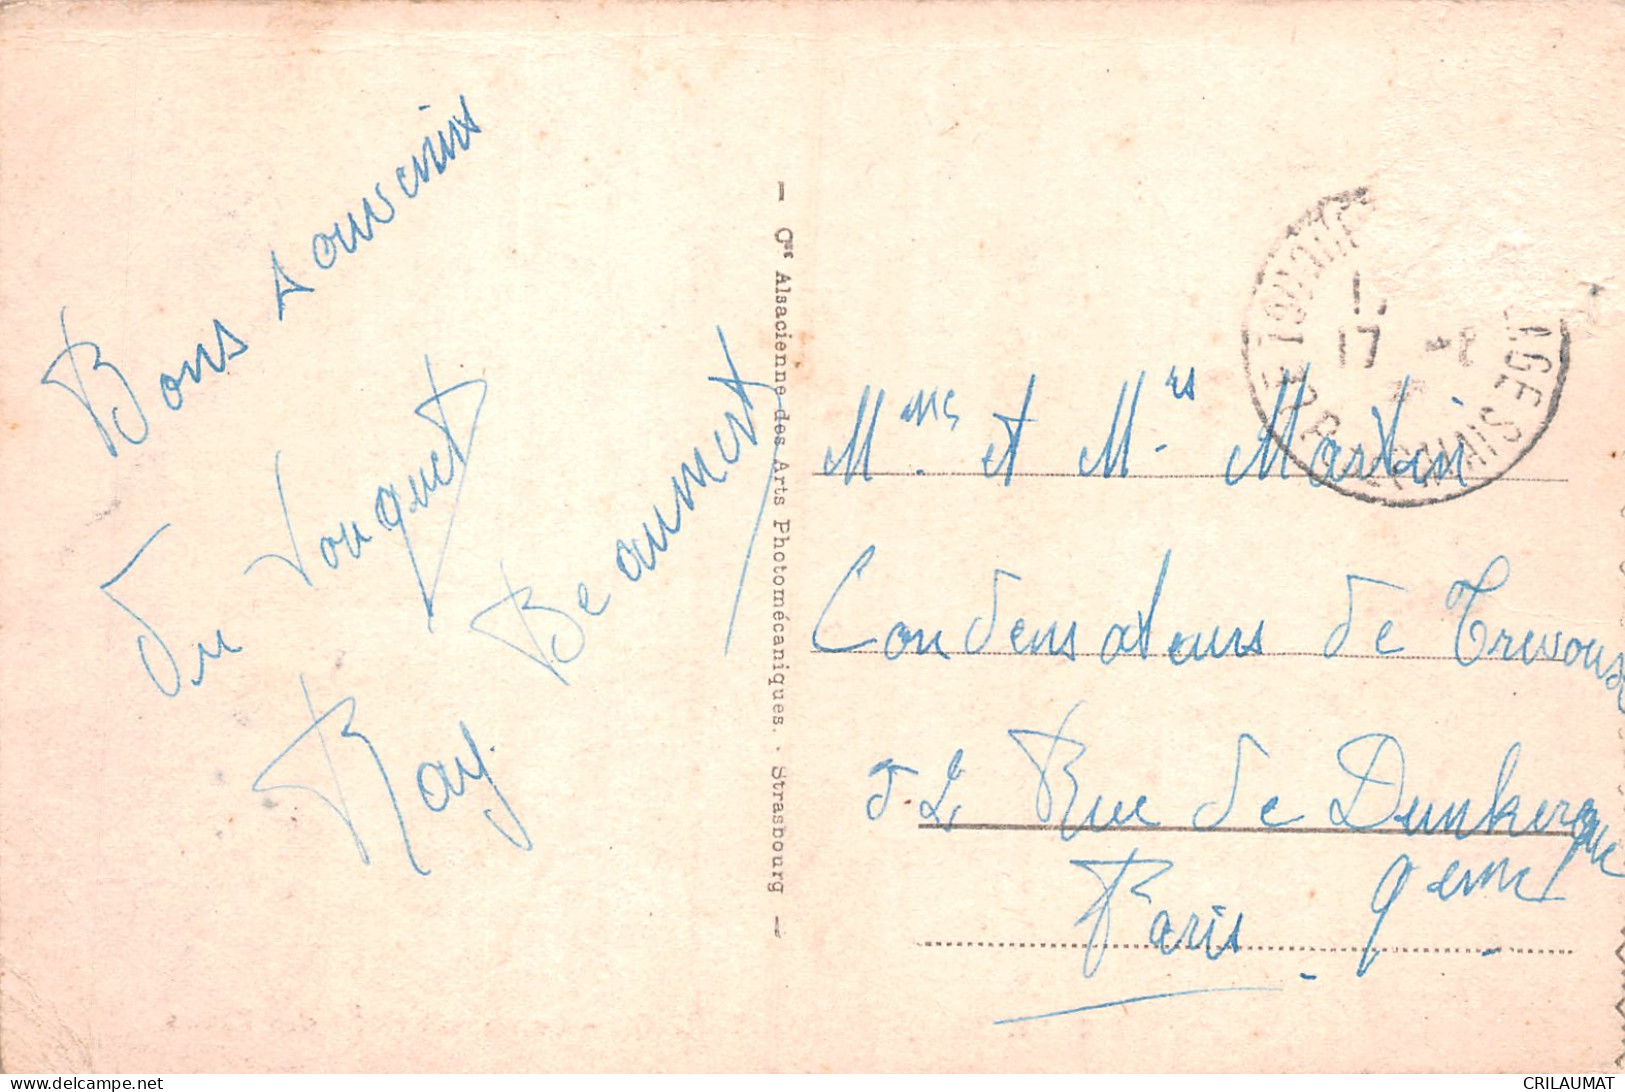 Bons souvenirs
Du Touquet
Ray Beaumont
— Cie Alsacienne des Arts Photomécaniques. - Strasbourg —
Mme et Mrs Martin
Condensateurs de Trevoux
52 Rue de Dunkerque
Paris 9eme
17 -8
CRILAUMAT